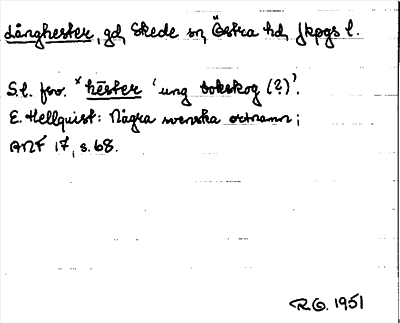 Långhester, gd, Skede sn, Östra hd, Jkpgs l.
S.l. fsv. *hēster 'ung bokskog (?)'.
E. Hellquist: Några svenska ortnamn;
ANF 17, s. 68.
R.G. 1951